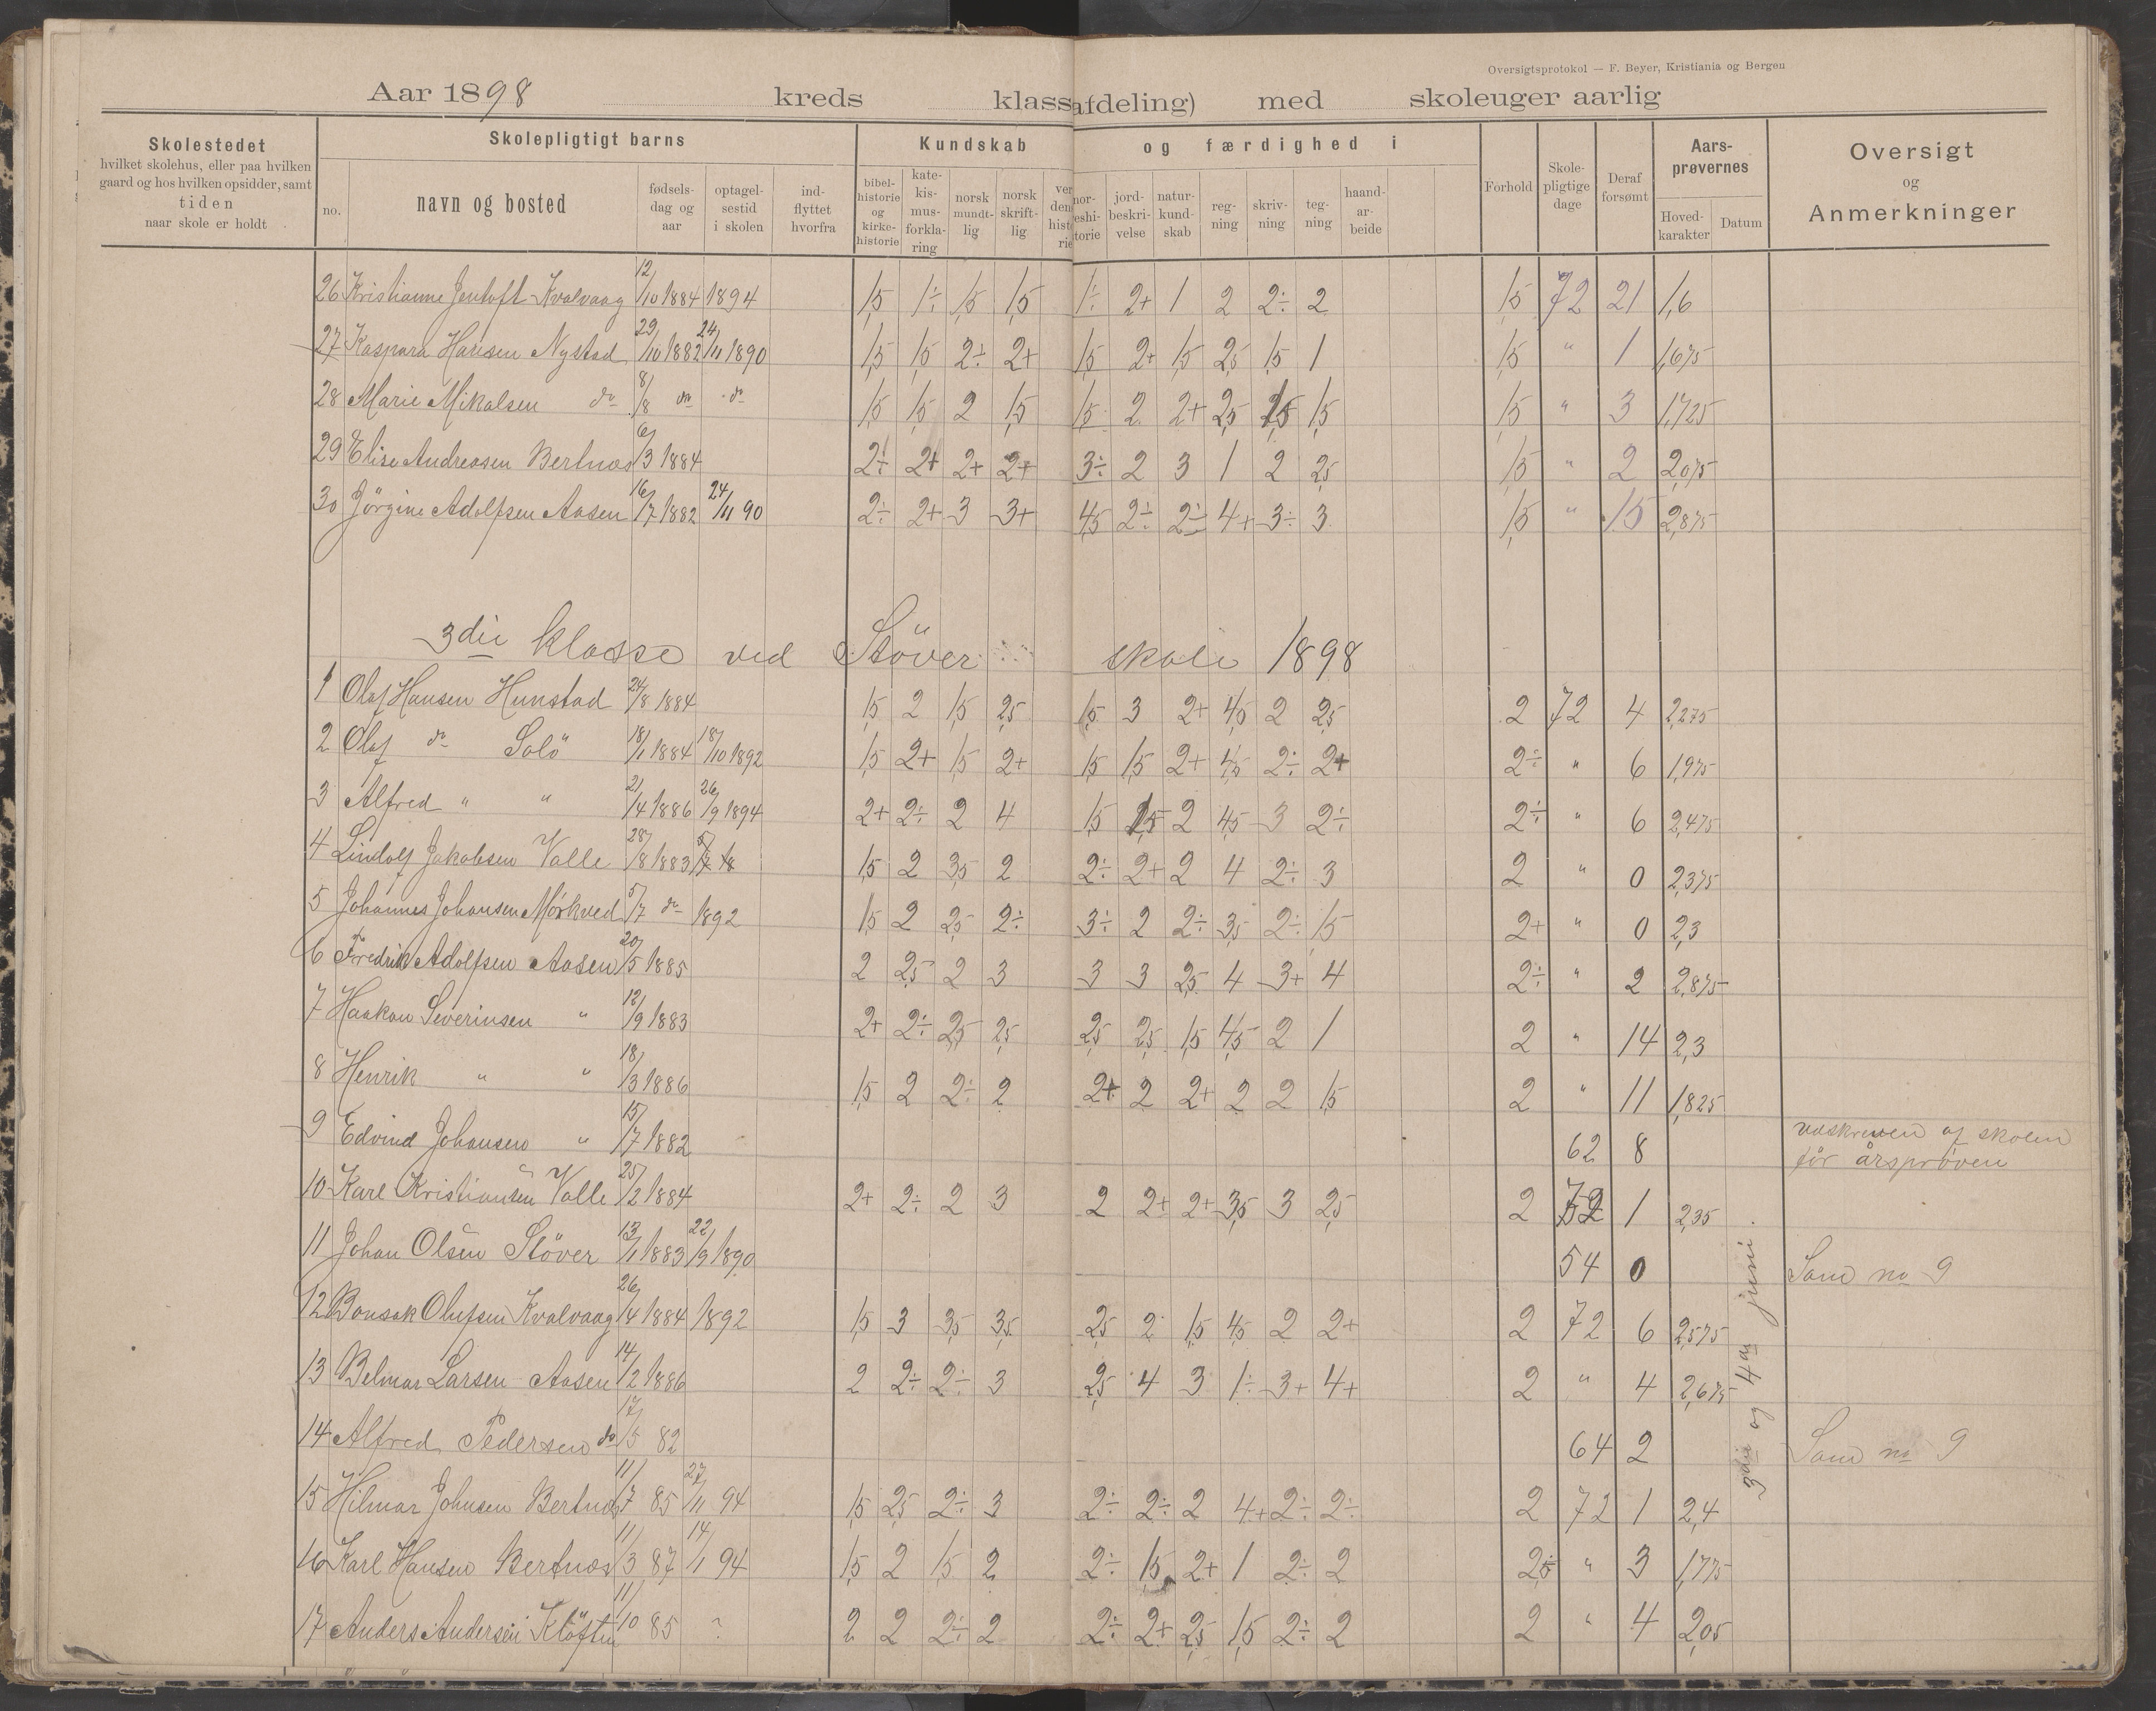 Oversigtsprotokol — F. Beyer, Kristiania og Bergen
Aar 1898 kreds klasse (afdeling) med skoleuger aarlig
Skolestedet hvilket skolehus, eller paa hvilken gaard og hos hvilken opsidder, samt tiden naar skole er holdt
Skolepligtigt barns
no. navn og bosted fødsels- dag og aar optagel- sestid i skolen ind- flyttet hvorfra
Kundskab og færdighed i
bibel- historie og kirke- historie kate- kis- mus- forkla- ring norsk mundt- lig norsk skrift- lig jord- beskri- velse natur- kund- skab reg- ning skriv- ning teg- ning haand- ar- beide
Forhold Skole- pligtige dage Deraf forsømt Aars- prøvernes Hoved- karakter Datum
Oversigt og Anmerkninger
26 Kristianne Jentoft Kvalvaag 12/10 1884 1894 1,5 1÷ 1,5 1,5 1÷ 2+ 1 2 2÷ 2 1,5 72 21 1,6
27 Kaspara Hansen Nystad 29/10 1882 24/11 1890 1,5 1,5 2÷ 2+ 1,5 2+ 1,5 2,5 1,5 1 1,5 " 1 1,675
28 Marie Mikalsen do 8/8 do do 1,5 1,5 2 1,5 1,5 2 2+ 2,5 1,5 1,5 1,5 " 3 1,725
29 Elise Andreasen Bertnes 6/3 1884 2÷ 2+ 2+ 2+ 3÷ 2 3 1 2 2,5 1,5 " 2 2,075
30 Jörgine Adolfsen Aasen 16/7 1882 24/11 90 2÷ 2+ 3 3+ 4,5 2÷ 2÷ 4+ 3÷ 3 1,5 " 15 2,875
3die klasse ved Stöver skole 1898
1 Olaf Hansen Hunstad 24/8 1884 1,5 2 1,5 2,5 1,5 3 2+ 4,5 2 2,5 2 72 4 2,275
2 Olaf do Solö 18/1 1884 18/10 1892 1,5 2+ 1,5 2+ 1,5 1,5 2+ 4,5 2÷ 2+ 2÷ " 6 1,975
3 Alfred " " 21/4 1886 26/9 1894 2+ 2÷ 2 4 1,5 1,5 2 4,5 3 2÷ 2÷ " 6 2,475
4 Lindolf Jakobsen Valle 28/8 1883 1,5 2 3,5 2 2÷ 2+ 2 4 2÷ 3 2 " 0 2,375
5 Johannes Johansen Mørkved 5/7 do 1892 1,5 2 2,5 2÷ 3÷ 2 2÷ 3,5 2÷ 1,5 2+ " 0 2,3
6 Fredrik Adolfsen Aasen 20/5 1885 2 2,5 2 3 3 3 2,5 4 3+ 4 2÷ " 2 2,875
7 Haakon Severinsen " 12/9 1883 2+ 2÷ 2,5 2,5 2,5 2,5 1,5 4,5 2 1 2 " 14 2,3
8 Henrik " " 18/3 1886 1,5 2 2÷ 2 2+ 2 2+ 2 2 1,5 2 " 11 1,825
9 Edvind Johansen " 15/7 1882 62 8 udskreven af skolen
før årsprøven
10 Karl Kristiansen Valle 25/2 1884 2+ 2÷ 2 3 2 2+ 2+ 3,5 3 2,5 2 72 1 2,35
11 Johan Olsen Stöver 13/1 1883 22/9 1890 54 0 Som no 9
12 Bonsak Olufsen Kvalvaag 26/4 1884 1892 1,5 3 3,5 3,5 2,5 2 1,5 4,5 2 2+ 2 72 6 2,575
13 Belmar Larsen Aasen 14/2 1886 2 2÷ 2÷ 3 2,5 4 3 1÷ 3+ 4+ 2 " 4 2,675
14 Alfred Pedersen do 17/5 82 64 2 Som no 9
15 Hilmar Johnsen Bertnes 11/7 85 27/11 94 1,5 2,5 2÷ 3 2÷ 2÷ 2 4+ 2÷ 2÷ 2 72 1 2,4
16 Karl Hansen Bertnes 11/3 87 14/1 94 1,5 2 1,5 2 2÷ 1,5 2+ 1 2÷ 2 " 3 1,775
17 Anders Andersen Klöften 11/10 85 ? 2 2 2÷ 2 2÷ 2+ 2,5 1,5 2÷ 2 2 " 4 2,05
3die og 4de juni